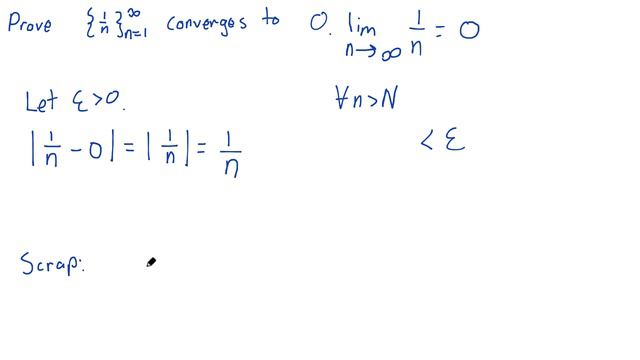 Prove {1/n}_{n=1}^{∞} converges to 0. lim_{n→∞} 1/n = 0
Let ε>0. ∀n>N
|1/n - 0| = |1/n| = 1/n < ε
Scrap: